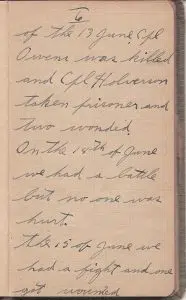 6
of the 13 June, Cpl
Owens was killed
and Cpl Holverson
taken prisoner and
two wonded
On the 14th of June
we had a battle
but no one was
hurt.
The 15 of June we
had a fight and one
got wounded